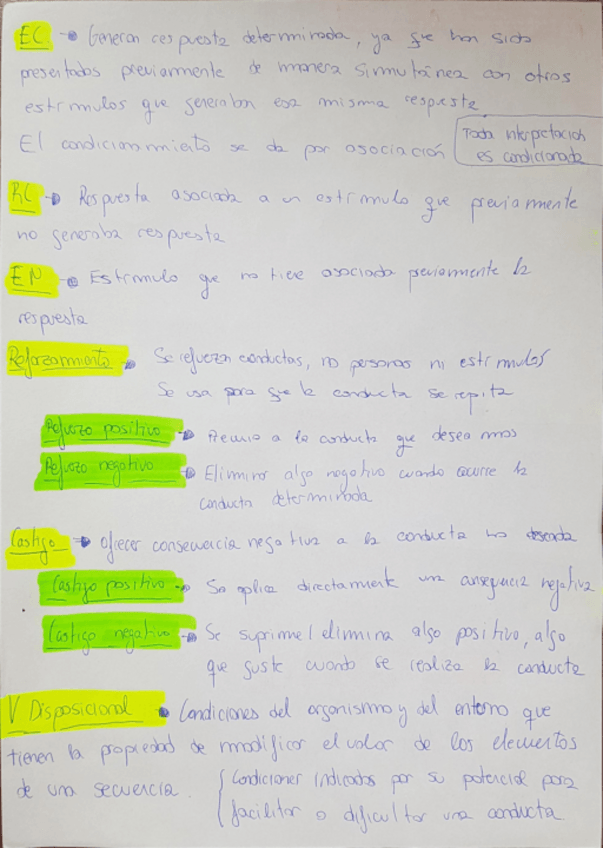 EC → Generan respuesta determinada, ya que han sido
presentados previamente de manera simultánea con otros
estímulos que generaban esa misma respuesta
El condicionamiento se da por asociación
Toda interpretación
es condicionada
RC → Respuesta asociada a un estímulo que previamente
no generaba respuesta
EN → Estímulo que no tiene asociada previamente la
respuesta
Reforzamiento → Se refuerzan conductas, no personas ni estímulos
Se usa para que la conducta se repita
Refuerzo positivo → Premio a la conducta que deseamos
Refuerzo negativo → Eliminar algo negativo cuando ocurre la
conducta determinada
Castigo → Ofrecer consecuencia negativa a la conducta no deseada
Castigo positivo → Se aplica directamente una consecuencia negativa
Castigo negativo → Se suprime/elimina algo positivo, algo
que guste cuando se realiza la conducta
V Disposicional → Condiciones del organismo y del entorno que
tienen la propiedad de modificar el valor de los elementos
de una secuencia.
Condiciones indicadas por su potencial para
facilitar o dificultar una conducta